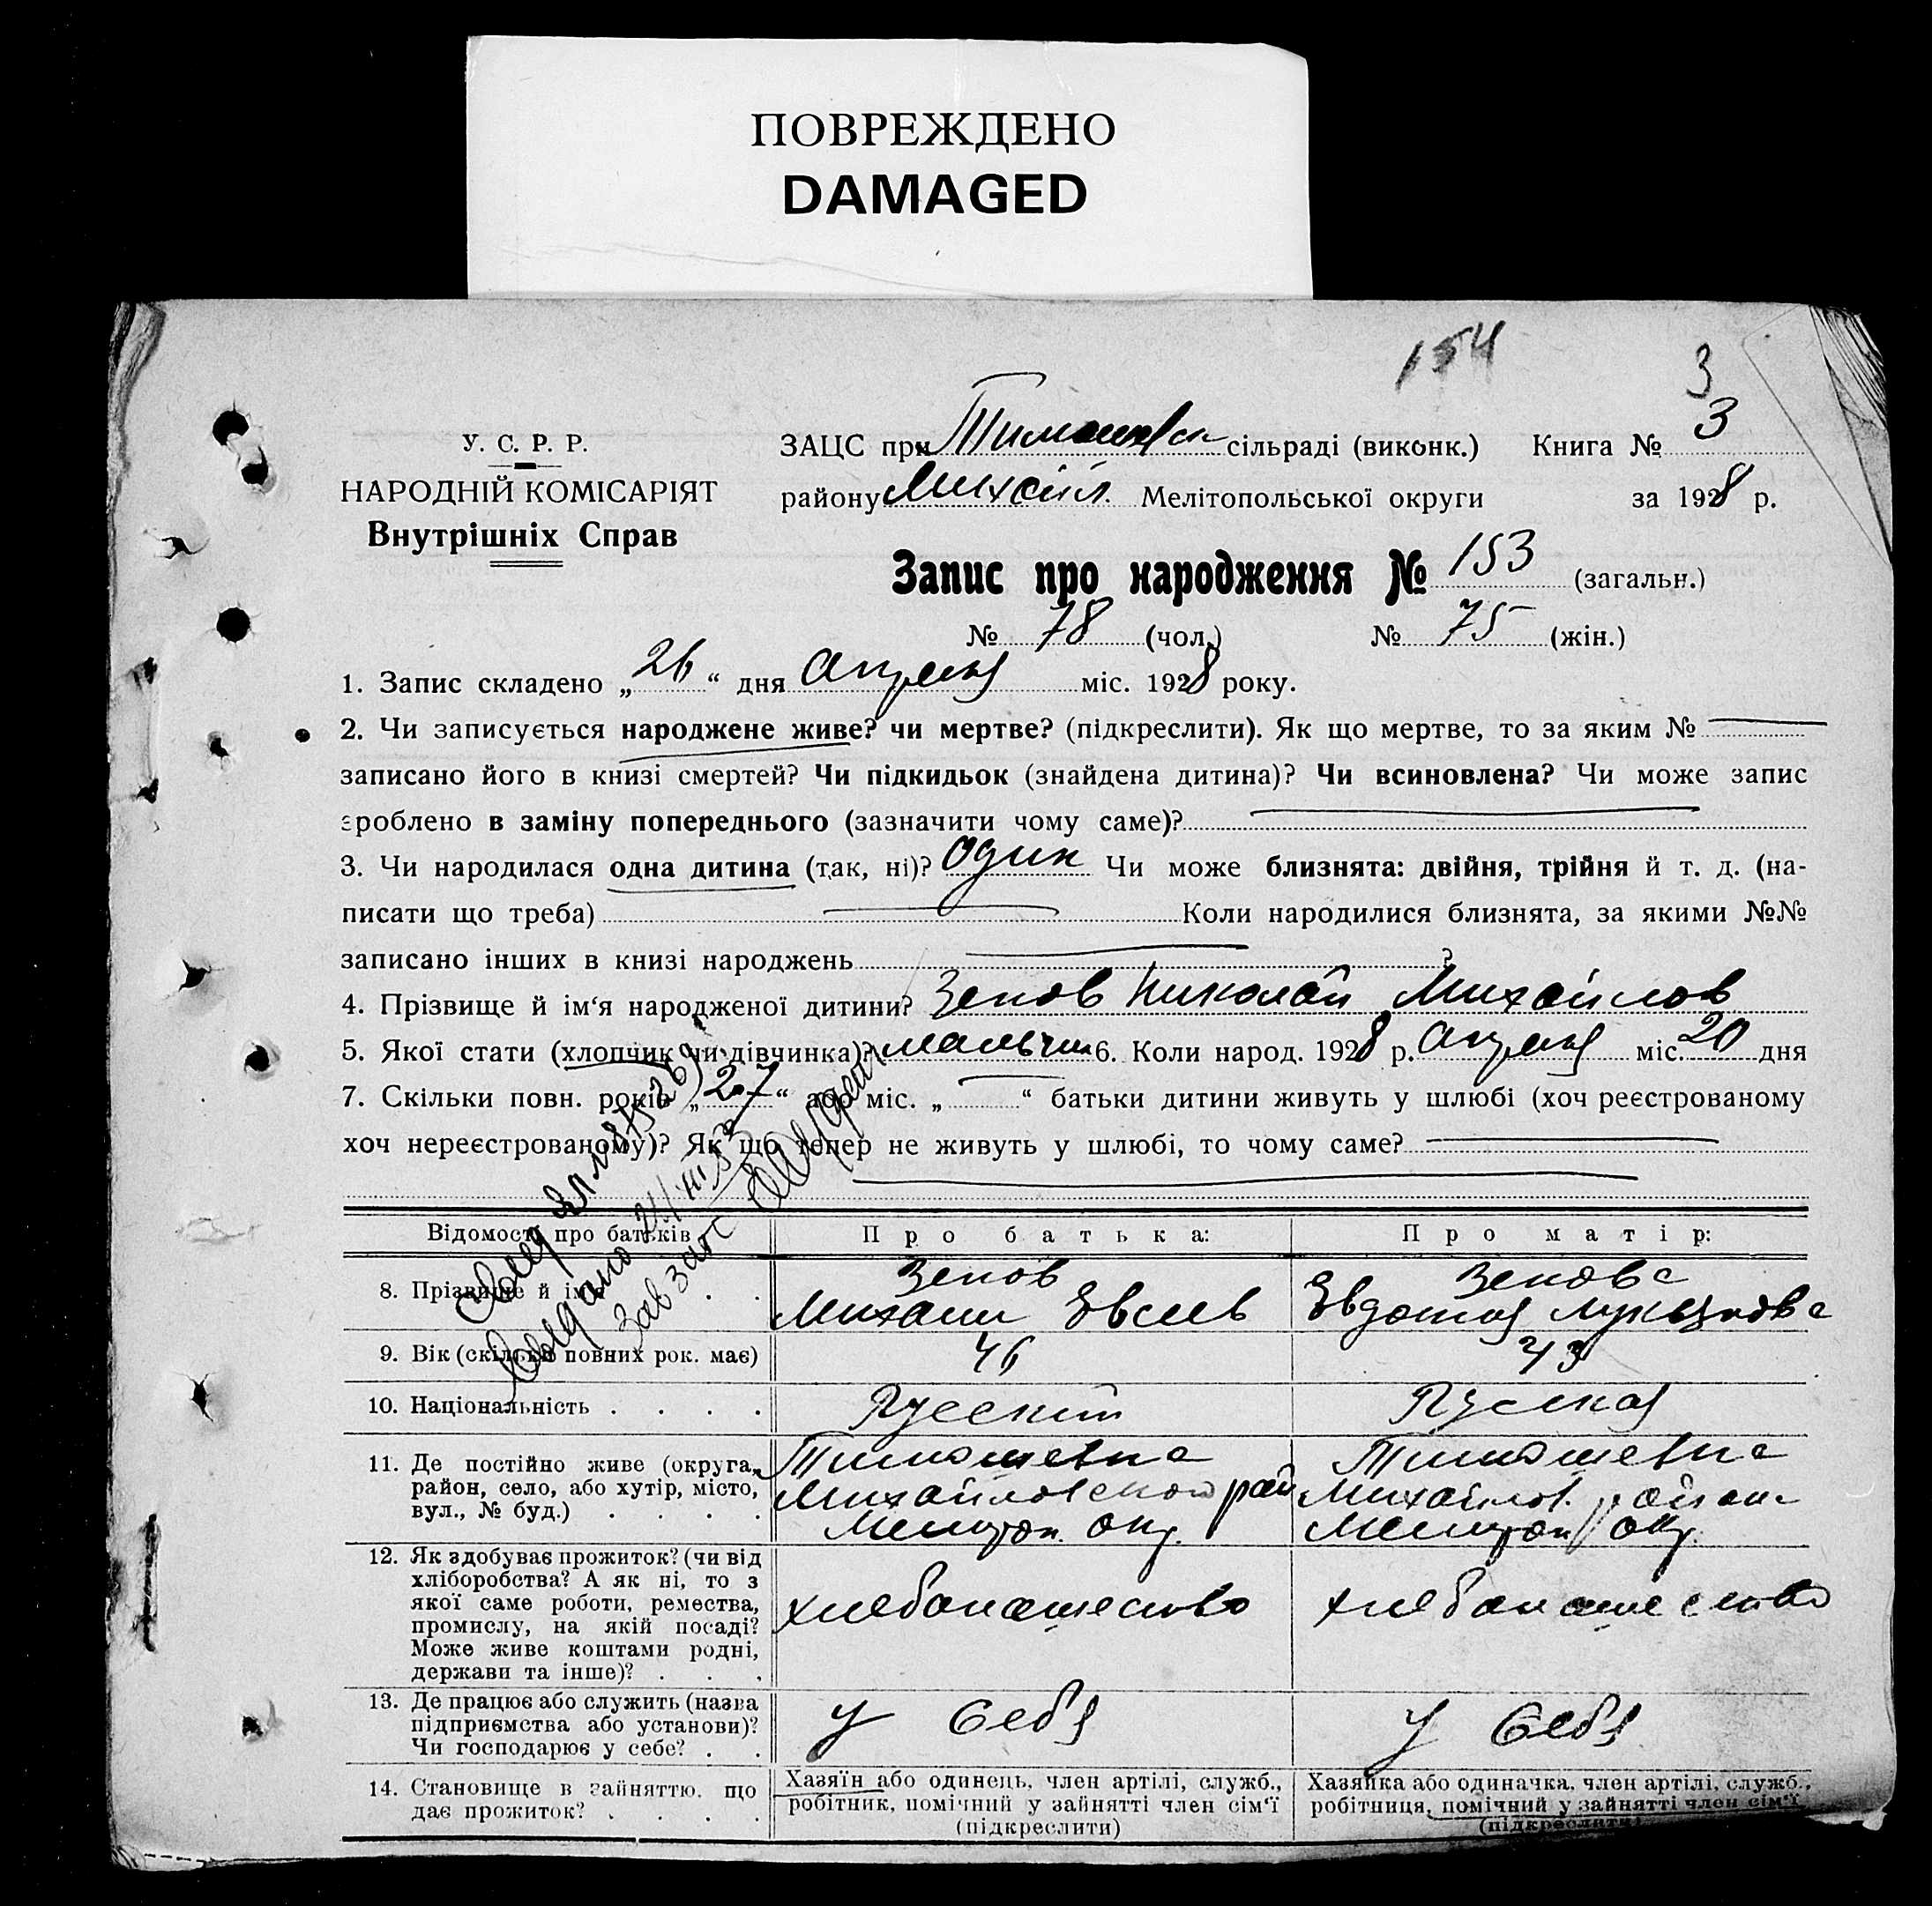 ПОВРЕЖДЕНО
DAMAGED
154
3
У. С. Р. Р.
НАРОДНІЙ КОМІСАРІЯТ
Внутрішніх Справ
ЗАЦС при Тимошевск сільраді (виконк.) Книга № 3
району Михайл. Мелітопольської округи за 1928 р.
Запис про народження № 153 (загальн.)
№ 78 (чол.) № 75 (жін.)
1. Запис складено „26“ дня Апреля міс. 1928 року.
2. Чи записується народжене живе? чи мертве? (підкреслити). Як що мертве, то за яким №
записано його в книзі смертей? Чи підкидьок (знайдена дитина)? Чи всиновлена? Чи може запис
зроблено в заміну попереднього (зазначити чому саме)?
3. Чи народилася одна дитина (так, ні)? Один Чи може близнята: двійня, трійня й т. д. (на-
писати що треба) Коли народилися близнята, за якими №№
записано інших в книзі народжень ?
4. Прізвище й ім‘я народженої дитини? Зенов Николай Михайлов
5. Якої стати (хлопчик чи дівчинка)? мальчик 6. Коли народ. 1928 р. Апреля міс. 20 дня
7. Скільки повн. років „27“ або міс. „ “ батьки дитини живуть у шлюбі (хоч реєстрованому
хоч нереєстрованому)? Як що тепер не живуть у шлюбі, то чому саме?
Зав загс
Відомості про батьків Про батька: Про матір:
8. Прізвище й ім‘я . . Зенов Михаил Евсеев Зенова Евдокия Лукьянова
9. Вік (скільки повних рок. має) 46 43
10. Національність . . . . Русский Русская
11. Де постійно живе (округа, район, село, або хутір, місто, вул., № буд.) . . . .
Тимошевка
Михайловской рай
Мелитоп. Окр.
Тимошевка
Михайлов. район
Мелитоп. Окр.
12. Як здобуває прожиток? (чи від
хліборобства? А як ні, то з
якої саме роботи, ремества,
промислу, на якій посаді?
Може живе коштами родні,
держави та інше)? . . .
хлебопашество хлебопашество
13. Де працює або служить (назва
підприємства або установи)?
Чи господарює у себе? . .
у себя у себя
14. Становище в зайняттю, що
дає прожиток? . . . .
Хазяїн або одинець, член артілі, служб.,
робітник, помічний у зайнятті член сім‘ї
(підкреслити)
Хазяйка або одиначка, член артілі, служб.,
робітниця, помічний у зайнятті член сім‘ї
(підкреслити)